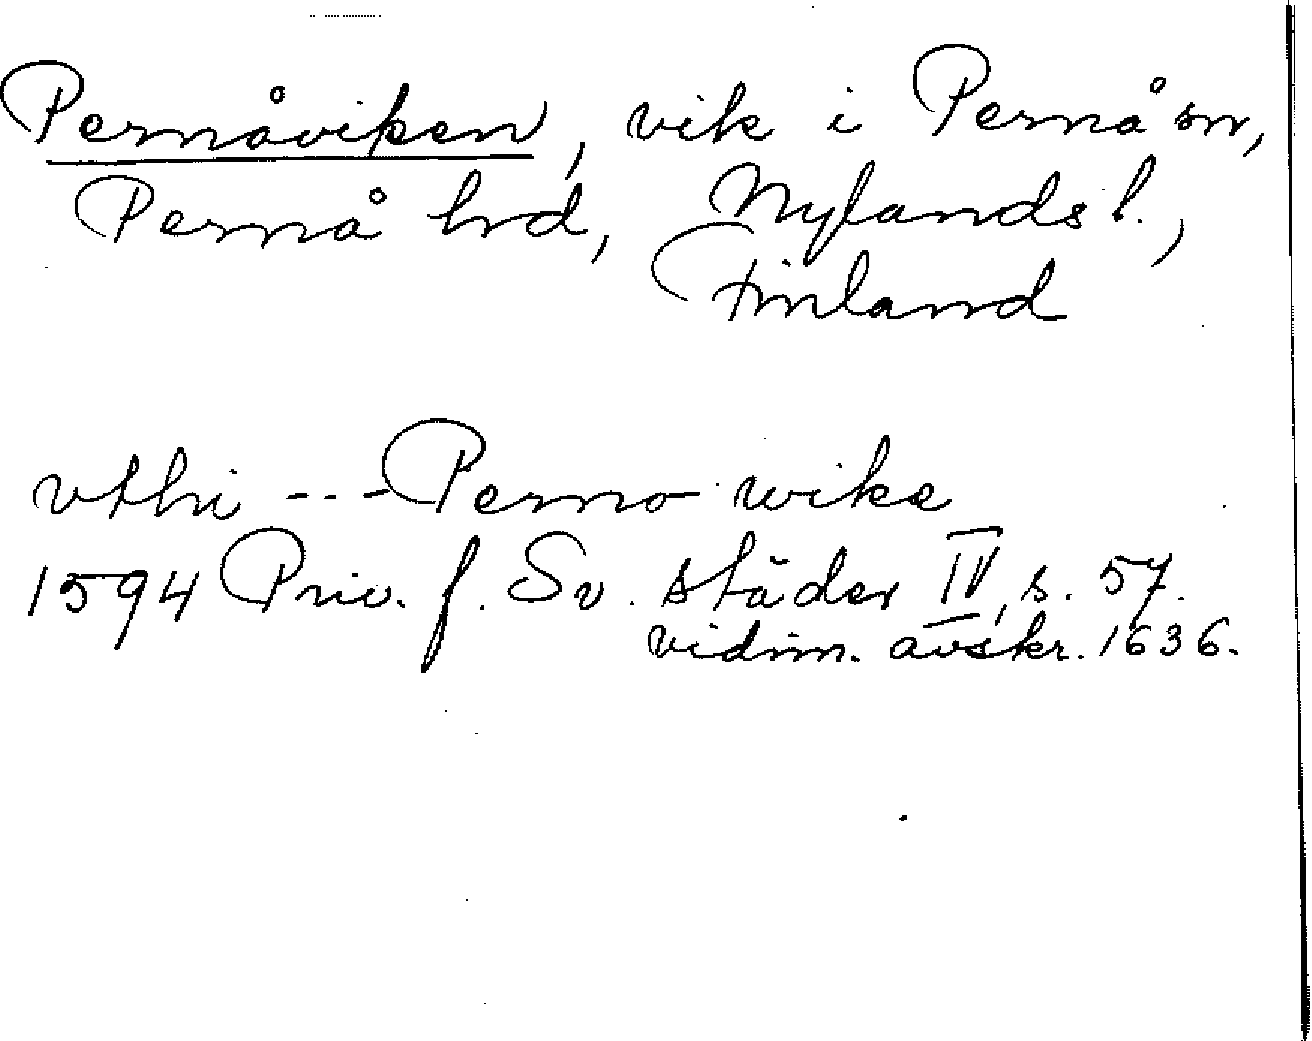 Pernåviken, vik i Pernå sn,
Pernå hrd, Nylands l.,
Finland
vthi --- Perno wike
1594 Priv. f. Sv. städer IV, s. 57.
vidim. avskr. 1636.